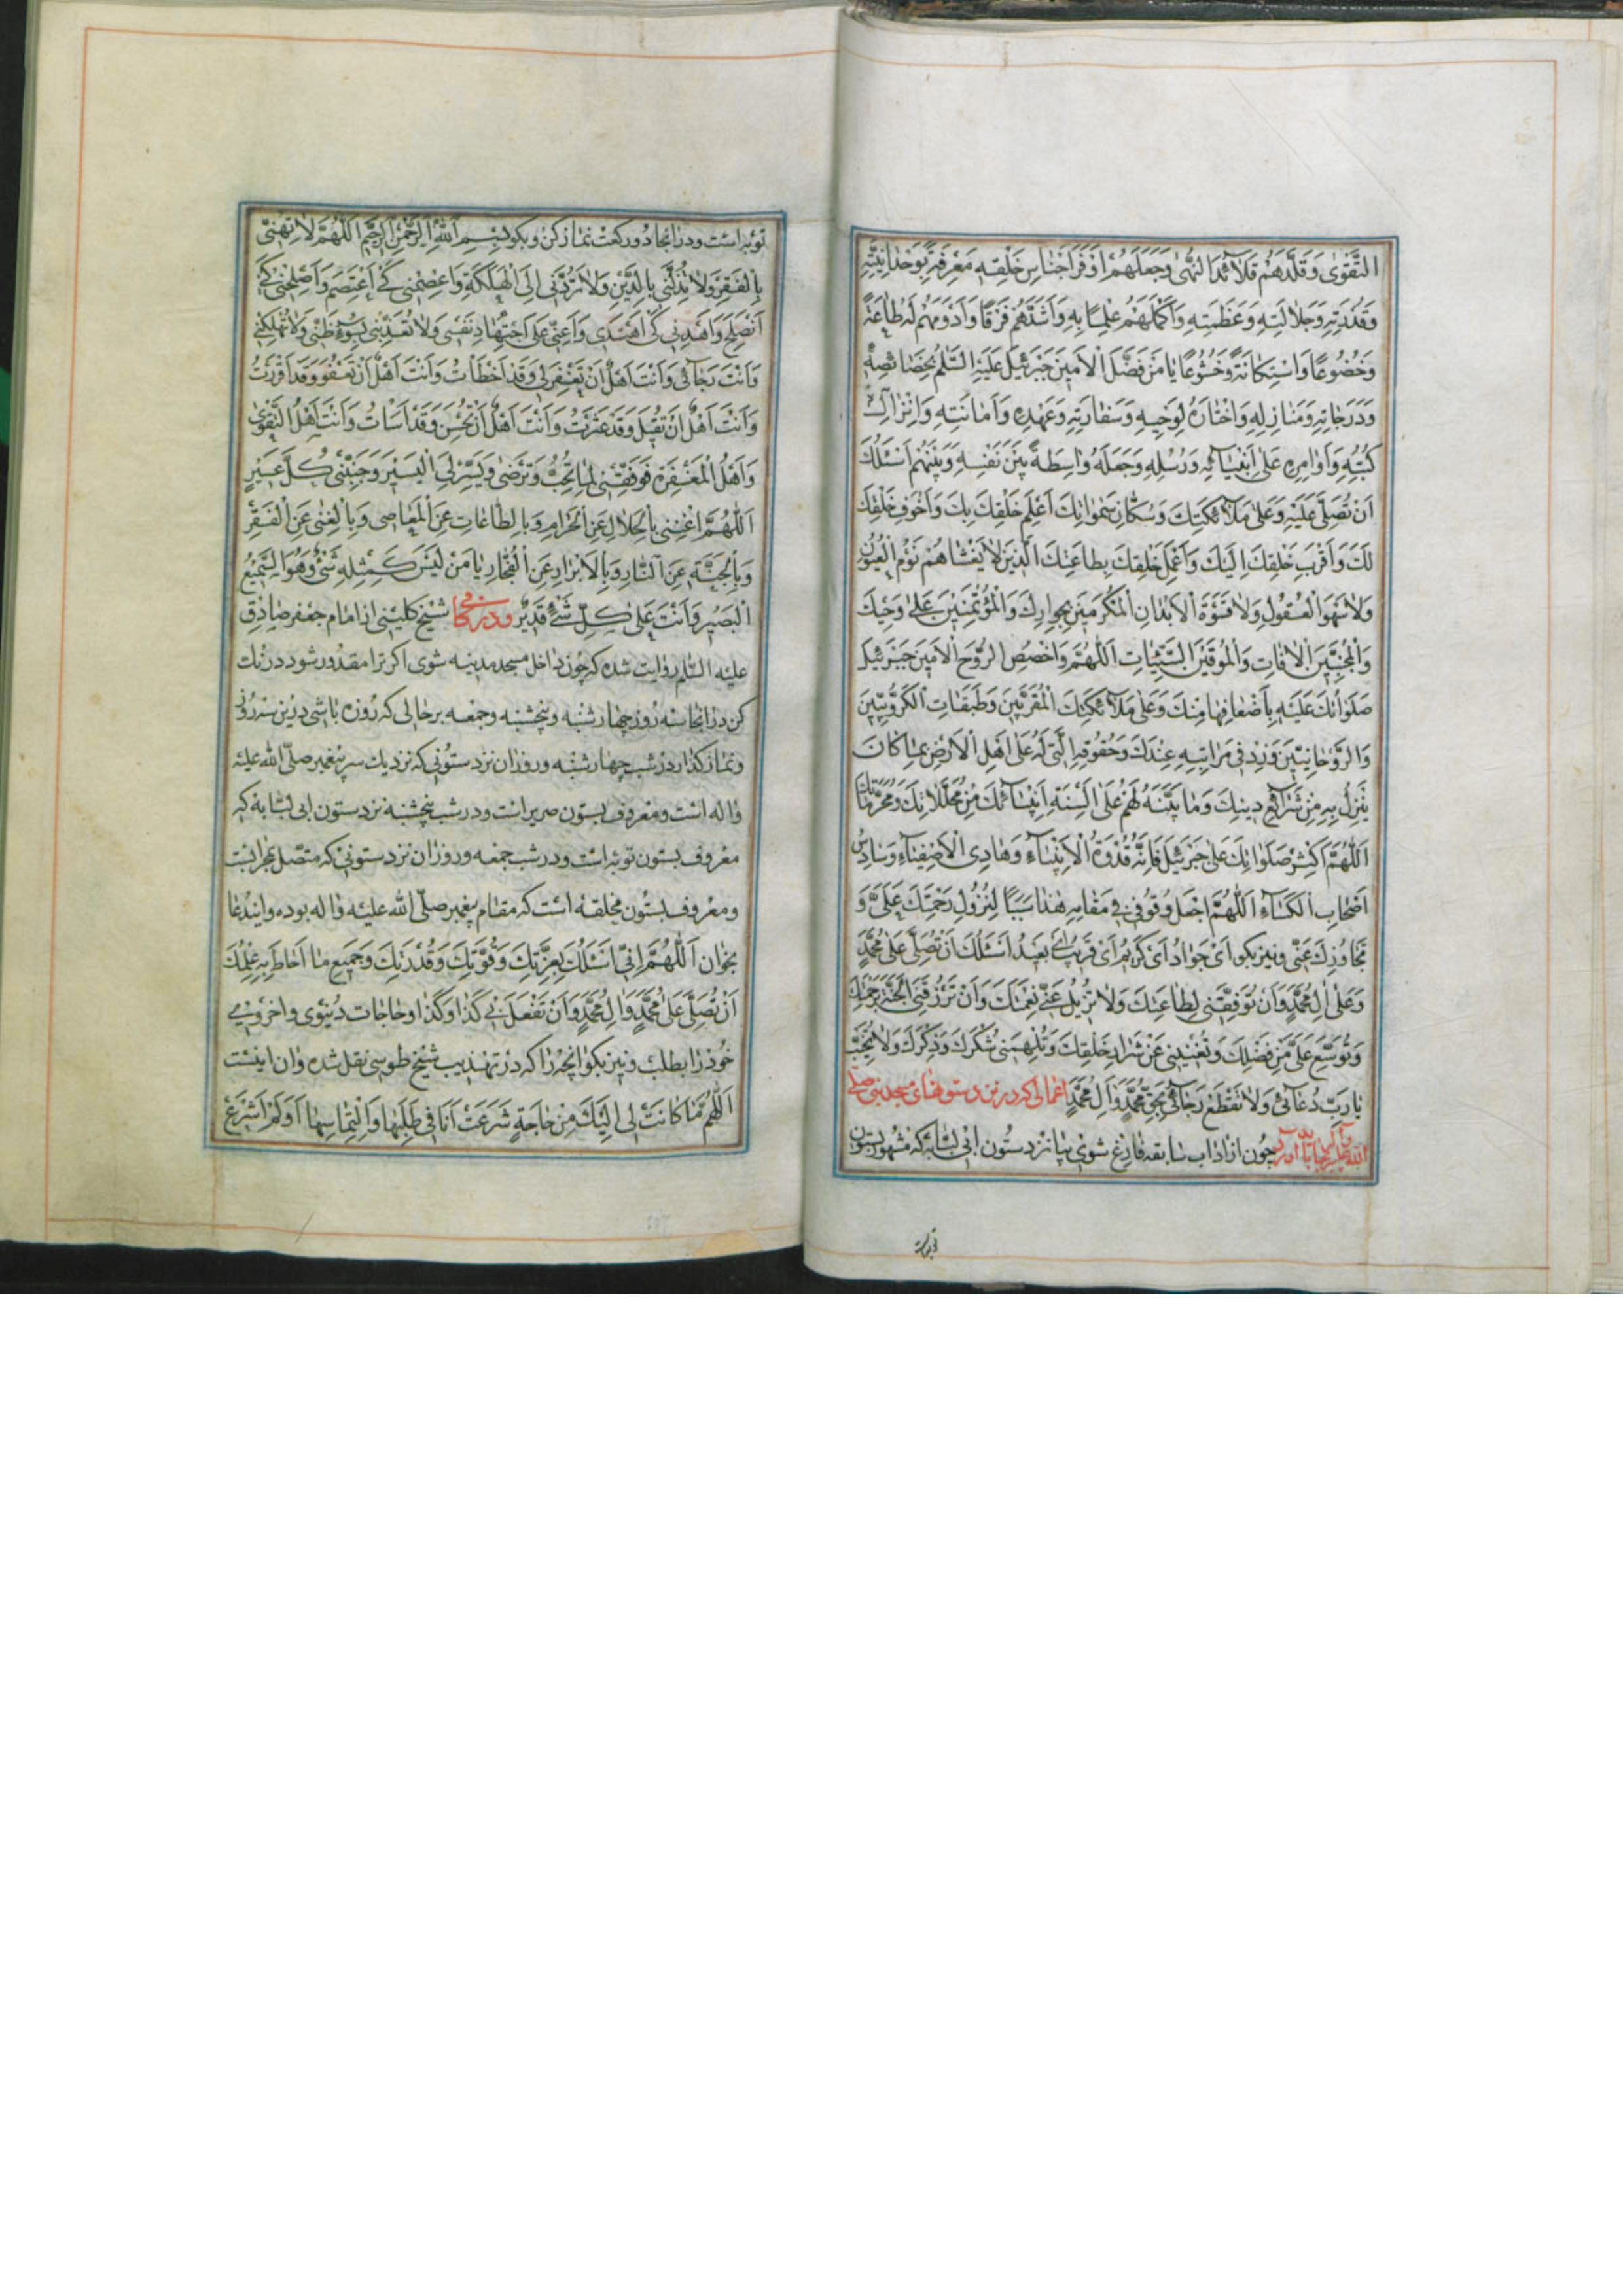 التَّقْوٰى وَقَلَّدَهُمْ قَلَآئِدَ النُّهٰى وَجَعَلَهُمْ اَوْفَرَ اَجْنَاسِ خَلْقِهِ مَعْرِفَةً بِوَحْدَانِيَّتِهِ
وَقُدْرَتِهِ وَجَلَالَتِهِ وَعَظَمَتِهِ وَاَكْمَلَهُمْ عِلْمًا بِهِ وَاَشَدَّهُمْ فَرَقًا وَاَدْوَمَهُمْ لَهُ طَاعَةً
وَخُضُوعًا وَاسْتِكَانَةً وَخُشُوعًا يَا مَنْ فَضَّلَ الْاَمِينَ جَبْرَئِيلَ عَلَيْهِ السَّلَامُ بِخَصَائِصِهِ
وَدَرَجَاتِهِ وَمَنَازِلِهِ وَاخْتَارَهُ لِوَحْيِهِ وَسَفَارَتِهِ وَعَهْدِهِ وَاَمَانَتِهِ وَاِنْزَالِ
كُتُبِهِ وَاَوَامِرِهِ عَلٰى اَنْبِيَآئِهِ وَرُسُلِهِ وَجَعَلَهُ وَاسِطَةً بَيْنَ نَفْسِهِ وَبَيْنَهُمْ اَسْئَلُكَ
اَنْ تُصَلِّيَ عَلَيْهِ وَعَلٰى مَلَآئِكَتِكَ وَسُكَّانِ سَمٰوَاتِكَ اَعْلَمِ خَلْقِكَ بِكَ وَاَخْوَفِ خَلْقِكَ
لَكَ وَاَقْرَبِ خَلْقِكَ اِلَيْكَ وَاَعْمَلِ خَلْقِكَ بِطَاعَتِكَ الَّذِينَ لَا يَغْشَاهُمْ نَوْمُ الْعُيُونِ
وَلَا سَهْوُ الْعُقُولِ وَلَا فَتْرَةُ الْاَبْدَانِ الْمُكَرَّمِينَ بِجِوَارِكَ وَالْمُؤْتَمَنِينَ عَلٰى وَحْيِكَ
وَالْمُجَنَّبِينَ الْاٰفَاتِ وَالْمُوقَيْنَ السَّيِّئَاتِ اَللّٰهُمَّ وَاخْصُصِ الرُّوحَ الْاَمِينَ جَبْرَئِيلَ
صَلَوَاتُكَ عَلَيْهِ بِاَضْعَافِهَا مِنْكَ وَعَلٰى مَلَآئِكَتِكَ الْمُقَرَّبِينَ وَطَبَقَاتِ الْكَرُّوبِيِّينَ
وَالرَّوْحَانِيِّينَ وَزِدْ فِي مَرَاتِبِهِ عِنْدَكَ وَحُقُوقِهِ الَّتِي لَهُ عَلٰى اَهْلِ الْاَرْضِ بِمَا كَانَ
يَنْزِلُ بِهِ مِنْ شَرَائِعِ دِينِكَ وَمَا بَيَّنْتَهُ لَهُمْ عَلٰى اَلْسِنَةِ اَنْبِيَآئِكَ مِنْ مُحَلَّلَاتِكَ وَمُحَرَّمَاتِكَ
اَللّٰهُمَّ اَكْثِرْ صَلَوَاتِكَ عَلٰى جَبْرَئِيلَ فَاِنَّهُ قُدْوَةُ الْاَنْبِيَآءِ وَهَادِي الْاَصْفِيَآءِ وَسَادِسُ
اَصْحَابِ الْكِسَآءِ اَللّٰهُمَّ اجْعَلْ وُقُوفِي فِي مَقَامِهِ هٰذَا سَبَبًا لِنُزُولِ رَحْمَتِكَ عَلَيَّ وَ
تَجَاوُزِكَ عَنِّي ونيز بكو اَيْ جَوَادُ اَيْ كَرِيمُ اَيْ قَرِيبُ اَيْ بَعِيدُ اَسْئَلُكَ اَنْ تُصَلِّيَ عَلٰى مُحَمَّدٍ
وَعَلٰى اٰلِ مُحَمَّدٍ وَاَنْ تُوَفِّقَنِي لِطَاعَتِكَ وَلَا تُزِيلَ عَنِّي نِعْمَتَكَ وَاَنْ تَرْزُقَنِي الْجَنَّةَ بِرَحْمَتِكَ
وَتُوَسِّعَ عَلَيَّ مِنْ فَضْلِكَ وَتُغْنِيَنِي عَنْ شِرَارِ خَلْقِكَ وَتُلْهِمَنِي شُكْرَكَ وَذِكْرَكَ وَلَا تُخَيِّبْ
يَا رَبِّ دُعَآئِي وَلَا تَقْطَعْ رَجَآئِي بِحَقِّ مُحَمَّدٍ وَاٰلِ مُحَمَّدٍ اعمالى كه در نزد ستونهاى مسجد نبى صلى
الله عليه واله بجا بايد اورد چون از اداب سابقه فارغ شوى بيا نزد ستون ابى لبابه كه مشهور بستون
توبه است
توبه است ودر انجا دو ركعت نماز كن وبكو بِسْمِ اللّٰهِ الرَّحْمٰنِ الرَّحِيمِ اَللّٰهُمَّ لَا تُهِنِّي
بِالْفَقْرِ وَلَا تُذِلَّنِي بِالدَّيْنِ وَلَا تَرُدَّنِي اِلَى الْهَلَكَةِ وَاعْصِمْنِي كَيْ اَعْتَصِمَ وَاَصْلِحْنِي كَيْ
اَنْصَلِحَ وَاهْدِنِي كَيْ اَهْتَدِيَ وَاَعِنِّي عَلَى اجْتِهَادِ نَفْسِي وَلَا تُعَذِّبْنِي بِسُوءِ ظَنِّي وَلَا تُهْلِكْنِي
وَاَنْتَ رَجَآئِي وَاَنْتَ اَهْلٌ اَنْ تَغْفِرَ لِي وَقَدْ اَخْطَأْتُ وَاَنْتَ اَهْلٌ اَنْ تَعْفُوَ وَقَدْ اَقْرَرْتُ
وَاَنْتَ اَهْلٌ اَنْ تُقِيلَ وَقَدْ عَثَرْتُ وَاَنْتَ اَهْلٌ اَنْ تُحْسِنَ وَقَدْ اَسَأْتُ وَاَنْتَ اَهْلُ التَّقْوٰى
وَاَهْلُ الْمَغْفِرَةِ فَوَفِّقْنِي لِمَا تُحِبُّ وَتَرْضٰى وَيَسِّرْ لِيَ الْيَسِيرَ وَجَنِّبْنِي كُلَّ عَسِيرٍ
اَللّٰهُمَّ اَغْنِنِي بِالْحَلَالِ عَنِ الْحَرَامِ وَبِالطَّاعَاتِ عَنِ الْمَعَاصِي وَبِالْغِنٰى عَنِ الْفَقْرِ
وَبِالْجَنَّةِ عَنِ النَّارِ وَبِالْاَبْرَارِ عَنِ الْفُجَّارِ يَا مَنْ لَيْسَ كَمِثْلِهِ شَيْءٌ وَهُوَ السَّمِيعُ
الْبَصِيرُ وَاَنْتَ عَلٰى كُلِّ شَيْءٍ قَدِيرٌ ودر كافى شيخ كلينى از امام جعفر صادق
عليه السّلام روايت شده كه چون داخل مسجد مدينه شوى اكر ترا مقدور شود درنك
كن در انجا سه روز چهارشنبه وپنجشنبه وجمعه برحالى كه روزه باشى درين سه روز
ونماز كذار در شب چهارشنبه وروز ان نزد ستونى كه نزديك سر پيغمبر صلّى الله عليه
واله است ومعروف بستون سرير است ودر شب پنجشنبه نزد ستون ابى لبابه كه
معروف بستون توبه است ودر شب جمعه وروز ان نزد ستونى كه متصل بمحرابست
ومعروف بستون مخلقه است كه مقام پيغمبر صلّى الله عليه واله بوده واين دعا
بخوان اَللّٰهُمَّ اِنِّي اَسْئَلُكَ بِعِزَّتِكَ وَقُوَّتِكَ وَقُدْرَتِكَ وَجَمِيعِ مَا اَحَاطَ بِهِ عِلْمُكَ
اَنْ تُصَلِّيَ عَلٰى مُحَمَّدٍ وَاٰلِ مُحَمَّدٍ وَاَنْ تَفْعَلَ بِي كَذَا وَكَذَا وحاجات دنيوى واخروى
خود را بطلب ونيز بكو انچه را كه در تهذيب شيخ طوسى نقل شده وان اينست
اَللّٰهُمَّ مَا كَانَتْ لِي اِلَيْكَ مِنْ حَاجَةٍ شَرَعْتُ اَنَا فِي طَلَبِهَا وَالْتِمَاسِهَا اَوْ لَمْ اَشْرَعْ